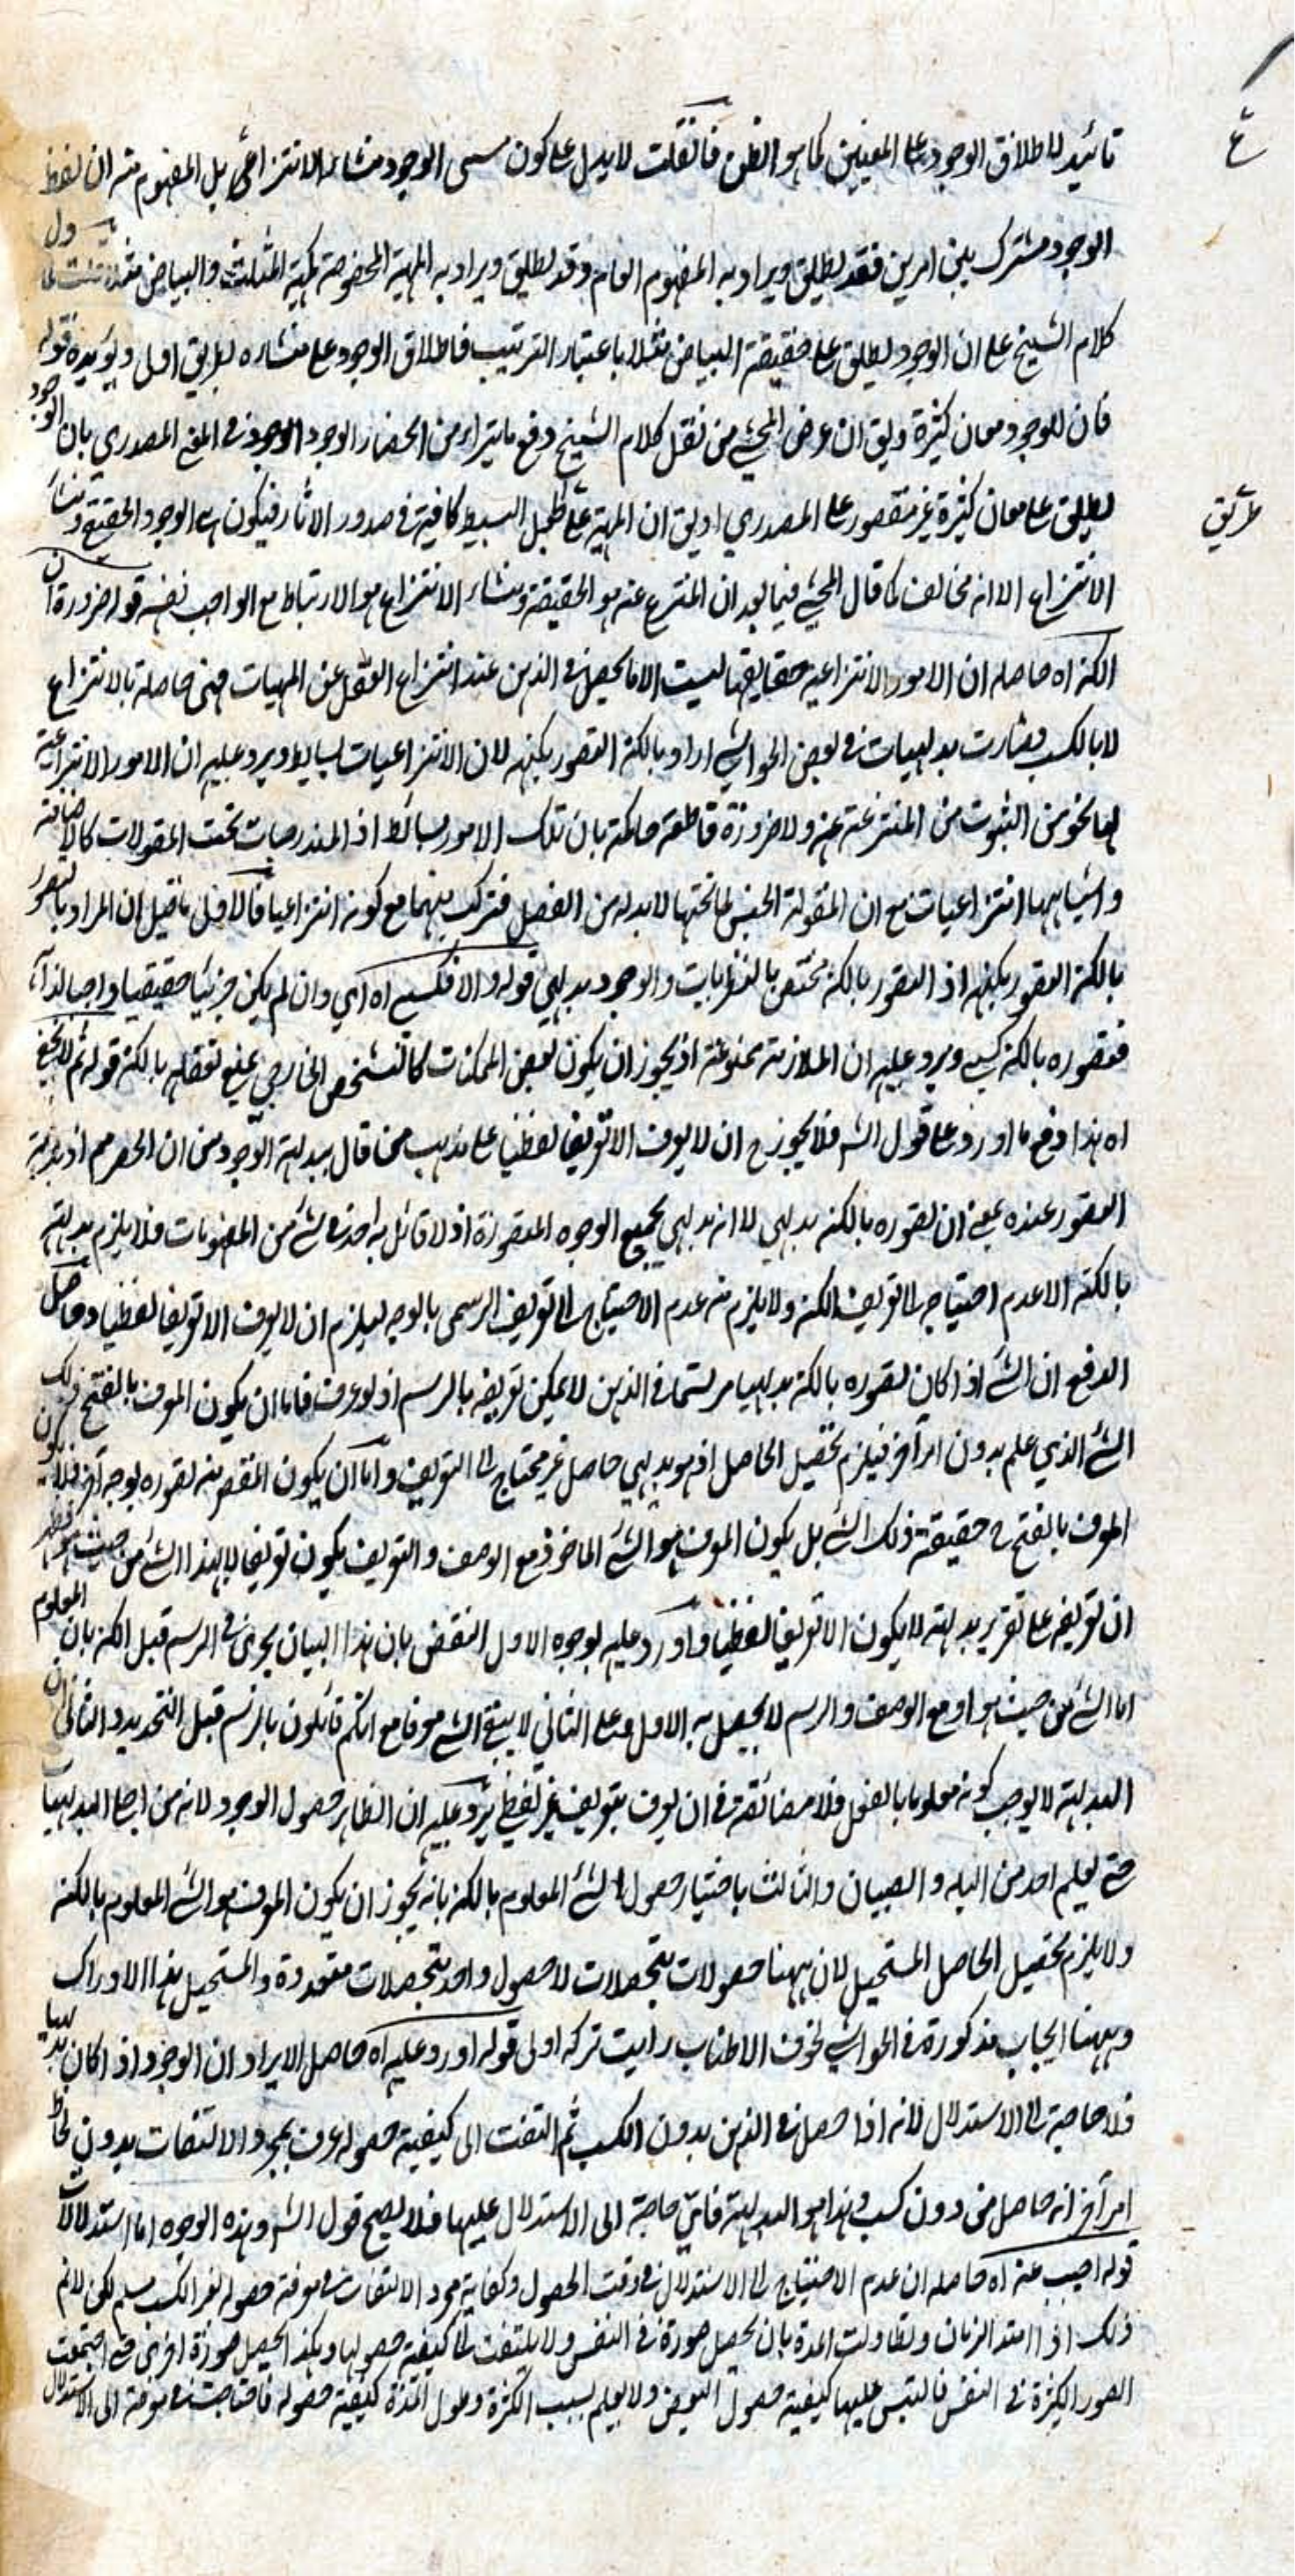 تائيد لاطلاق الوجود على المعنيين كما هو الظن فان قلت لا يدل على كون مسمى الوجود منشاء الانتزاعى بل المفهوم منه ان لفظ
الوجود مشترك بين امرين فقد يطلق ويراد به المفهوم العام وقد يطلق ويراد به المهية المخصوصة كمهية المثلث والبياض
كلام الشيخ على ان الوجود يطلق على حقيقة البياض مثلا باعتبار الترتيب فاطلاق الوجود على منشاءه بطريق اول ويؤيده قوله
فان للوجود معان كثيرة وليق ان غرض المحشي من نقل كلام الشيخ دفع ما يتراءى من انحصار الوجود في المعنى المصدري بان الوجود
يطلق على معان كثيرة غير مقصور على المصدري او يق ان المهية على الجعل البسيط كافية في صدور الاثار فيكون هي الوجود الحقيقي ومنشاء
الانتزاع الا انه مخالف لما قال المحشي فيما بعد ان المنتزع عنه هو الحقيقة ومنشاء الانتزاع هو الارتباط مع الواجب نفسه قوله ضرورة ان
الكنه اه حاصله ان الامور الانتزاعية حقايقها ليست الا ما يحصل في الذهن عند انتزاع العقل عن المهيات فهي حاصلة بالانتزاع
لا بالكسب فصارت بديهيات في بعض الحواشي اراد بالكنه التصور بكنهه لان الانتزاعيات بسايط ويرد عليه ان الامور الانتزاعية
لها نحو من الثبوت من المنتزعة عنه ولا ضرورة قاطعة حاكمة بان تلك الامور بسائط اذ المندرجات تحت المقولات كالاضافة
واشباهها انتزاعيات مع ان المقولة الجنس لما تحتها لا بد له من الفصل فتركب منهما مع كونه انتزاعيا فالاولى ما قيل ان المراد بالتصور
بالكنه التصور بكنهه اذ التصور بالكنه مختص بالنظريات والوجود بديهي قوله والا فكسبي اه اي وان لم يكن جزئيا حقيقيا واجبا لذاته
فتصوره بالكنه كسبي ويرد عليه ان الملازمة ممنوعة اذ يجوز ان يكون بعض الممكنات كالتشخص الخارجي يمتنع تعقله بالكنه قوله ثم لا يخفى
اه هذا دفع ما اورد على قول الش فلا يجوز ح ان لا يعرف الا تعريفا لفظيا على مذهب من قال ببديهة الوجود من ان الحصر مم اذ بديهية
التصور عنده بمعنى ان تصوره بالكنه بديهي لا انه بديهي بجميع الوجوه المتصورة اذ لا قائل به احد في شئ من المفهومات فلا يلزم بديهته
بالكنه الا عدم احتياجه الى تعريف الكنه ولا يلزم منه عدم الاحتياج الى تعريف الرسمي بالوجه ليلزم ان لا يعرف الا تعريفا لفظيا وحاصل
الدفع ان الشئ اذا كان تصوره بالكنه بديهيا مرتسما في الذهن لا يمكن تعريفه بالرسم اذ لو عرف فاما ان يكون المعرف بالفتح ذلك
الشئ الذي علم بدون امر آخر فيلزم تحصيل الحاصل اذ هو بديهي حاصل غير محتاج الى التعريف واما ان يكون المقصود منه تصوره بوجه آخر فلا يكون
المعرف بالفتح ح حقيقة ذلك الشئ بل يكون المعرف هو الشئ الماخوذ مع الوصف والتعريف يكون تعريفا لا لهذا الشئ من حيث هو فظهر
ان تعريفه على تقرير بديهته لا يكون الا تعريفا لفظيا واورد عليه بوجوه الاول النقض بان هذا البيان يجرى في الرسم قبل الكنه بان المعلوم
اما الشئ من حيث هو او مع الوصف والرسم لا يحصل به الاول وعلى الثاني لا يبقى الشئ معرفا مع انكم قائلون بالرسم قبل التحديد والثاني ان
البديهة لا يوجب كونه معلوما بالفعل فلا مضائقة في ان يعرف بتعريف غير لفظي يرد عليه ان الظاهر حصول الوجود لانه من اجلى البديهيات
حتى يعلم احد من البله والصبيان والثالث باختيار حصول الشئ المعلوم بالكنه بانه يجوز ان يكون المعرف هو الشئ المعلوم بالكنه
ولا يلزم تحصيل الحاصل المستحيل لان ههنا حصولات بتحصلات لا حصول واحد بتحصلات متعددة والمستحيل هذا الادراك
وههنا ابحاث مذكورة في الحواشي لخوف الاطناب رايت تركه اولى قوله اورد عليه اه حاصل الايراد ان الوجود اذا كان بديهيا
فلا حاجة الى الاستدلال لانه اذا حصل في الذهن بدون الكسب ثم التفت الى كيفية حصوله عرف بمجرد الالتفات بدون لحاظ
امر آخر انه حاصل من دون كسب وهذا هو البديهة فاي حاجة الى الاستدلال عليها فلا يصح قول الش وهذه الوجوه اما استدلالات
قوله اجيب عنه اه حاصله ان عدم الاحتياج الى الاستدلال في وقت الحصول وكفاية مجرد الالتفات في معرفة حصوله بغير الكسب مسلم لكن لا نم
ذلك اذا امتد الزمان وتطاولت المدة بان يحصل صورة في النفس ولا يلتفت الى كيفية حصولها وهكذا يحصل صورة اخرى حتى اجتمعت
الصور الكثيرة في النفس فالتبس عليها كيفية حصول البعض ولا يعلم بسبب الكثرة وطول المدة كيفية حصوله فاحتاجت في معرفته الى الاستدلال
طريق